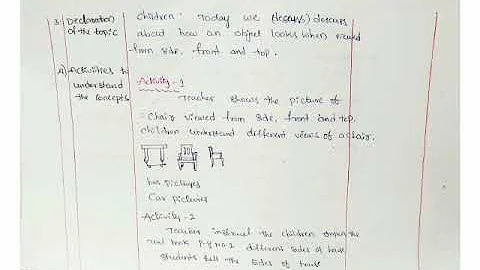 3. Declaration
of the topic
children: Today we (descuss) descuss
about how an object looks when viewed
from side, front and top.
4) Activities to
understand
the concepts
Activity-1
Teacher shows the picture of
Chair viewed from side, front and top.
children understand different views of a chair.
bus pictures
Car pictures
Activity-2
Teacher instruct the children
text book P.g no.2 different sides of
Students tell the sides of